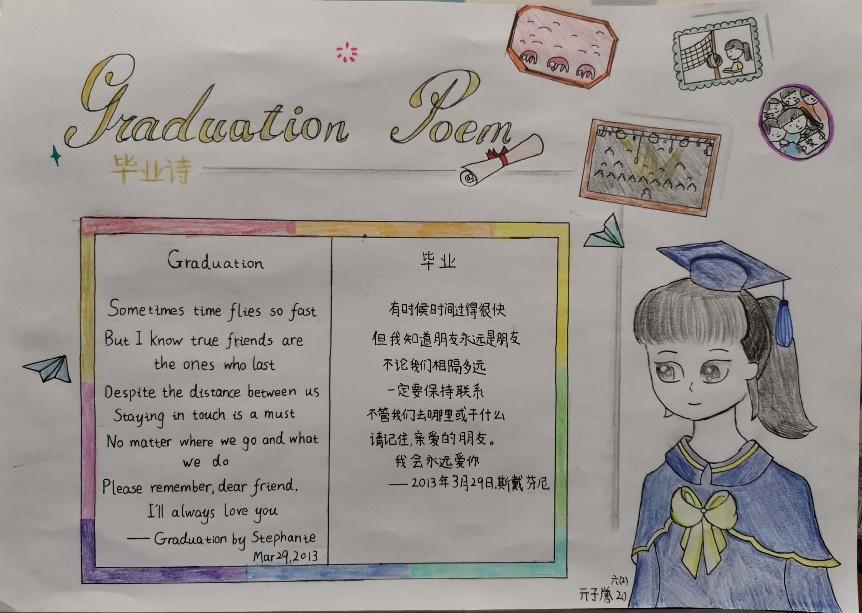 Graduation Poem
毕业诗
Graduation
Sometimes time flies so fast
But I know true friends are
the ones who last
Despite the distance between us
Staying in touch is a must
No matter where we go and what
we do
Please remember, dear friend.
I'll always love you
—— Graduation by Stephanie
Mar29,2013
毕业
有时候时间过得很快
但我知道朋友永远是朋友
不论我们相隔多远
一定要保持联系
不管我们去哪里或干什么
请记住,亲爱的朋友。
我会永远爱你
—— 2013年3月29日,斯戴芬尼
六(2)